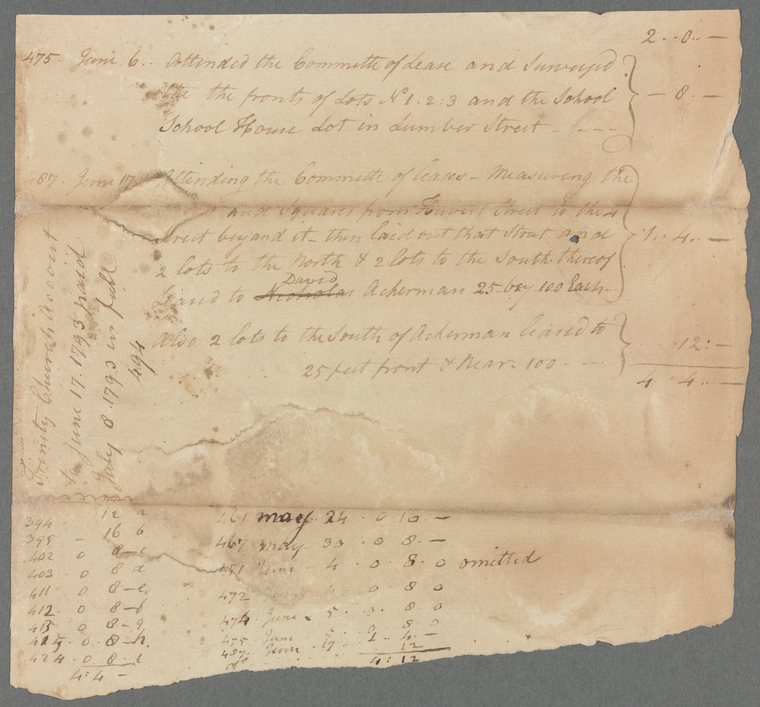 2 .. 0 .. —
475 - June 6 .. Attended the Committe of Lease and Surveyed
the fronts of Lots No 1. 2. 3 and the School — 8 . —
School House Lot in Lumber Street - - - -
487 - June 17 Attending the Committe of leases - Measuring the
and Squares from Street to the
Street beyand it - then laid out that Street and 1 . 4 . —
2 lots to the North & 2 lots to the South thereof
David
Leased to Nicholas Ackerman 25 by 100 Each -
Also 2 lots to the South of Ackerman leased to 12 : —
25 feet front & Rear - 100 - - -
4 4 . —
Trinity Church Account
to June 17. 1793 paid
July 8 1793 in full
494
394 . 12 a
395 - 16 b
402 0 8 - c
403 . 0 8 d
411 . 0 8 - e
412 . 0 8 - f
413 0 8 - g
415 . 0 . 8 - h
424 . 0 . 8 . i
4 : 4 -
461 may . 24 . 0 10 —
467 may . 33 . 0 8 . —
471 June . 4 . 0 . 8 . 0 omitted
472 0 8 0
474 . June . 5 . 0 . 8 0
475 June 0 8 . 0
487 . June . 17 . 1 . 4 . —
do 12
4 : 12